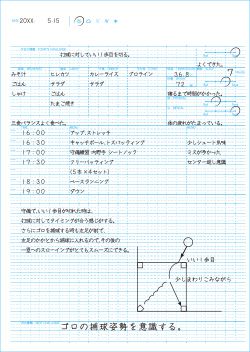 20XX 5 15
打球に対していい1歩目を切る。
よくできた。
みそ汁 ヒレカツ カレーライス プロテイン 36.8 7
ごはん サラダ サラダ 72
しゃけ ごはん 寝るまで時間がかかった。
たまご焼き
三食バランスよく食べた。 体の疲れがたまっている。
16:00 アップ、ストレッチ
16:30 キャッチボール、トスバッティング 少しシュート気味
17:00 守備練習 内野手 シートノック ミスが多かった
17:30 フリーバッティング センター返し意識
(5本×4セット)
18:30 ベースランニング
19:00 ダウン
守備でいい1歩目が切れた時は、
打球に対してタイミングが合う感じがする。
さらにゴロを捕球する時も左足が前で、
左足のかかとから捕球に入れるので、その後の
一塁へのスローイングがとてもスムーズにできる。
いい1歩目
少しまわりこみながら
ゴロの捕球姿勢を意識する。